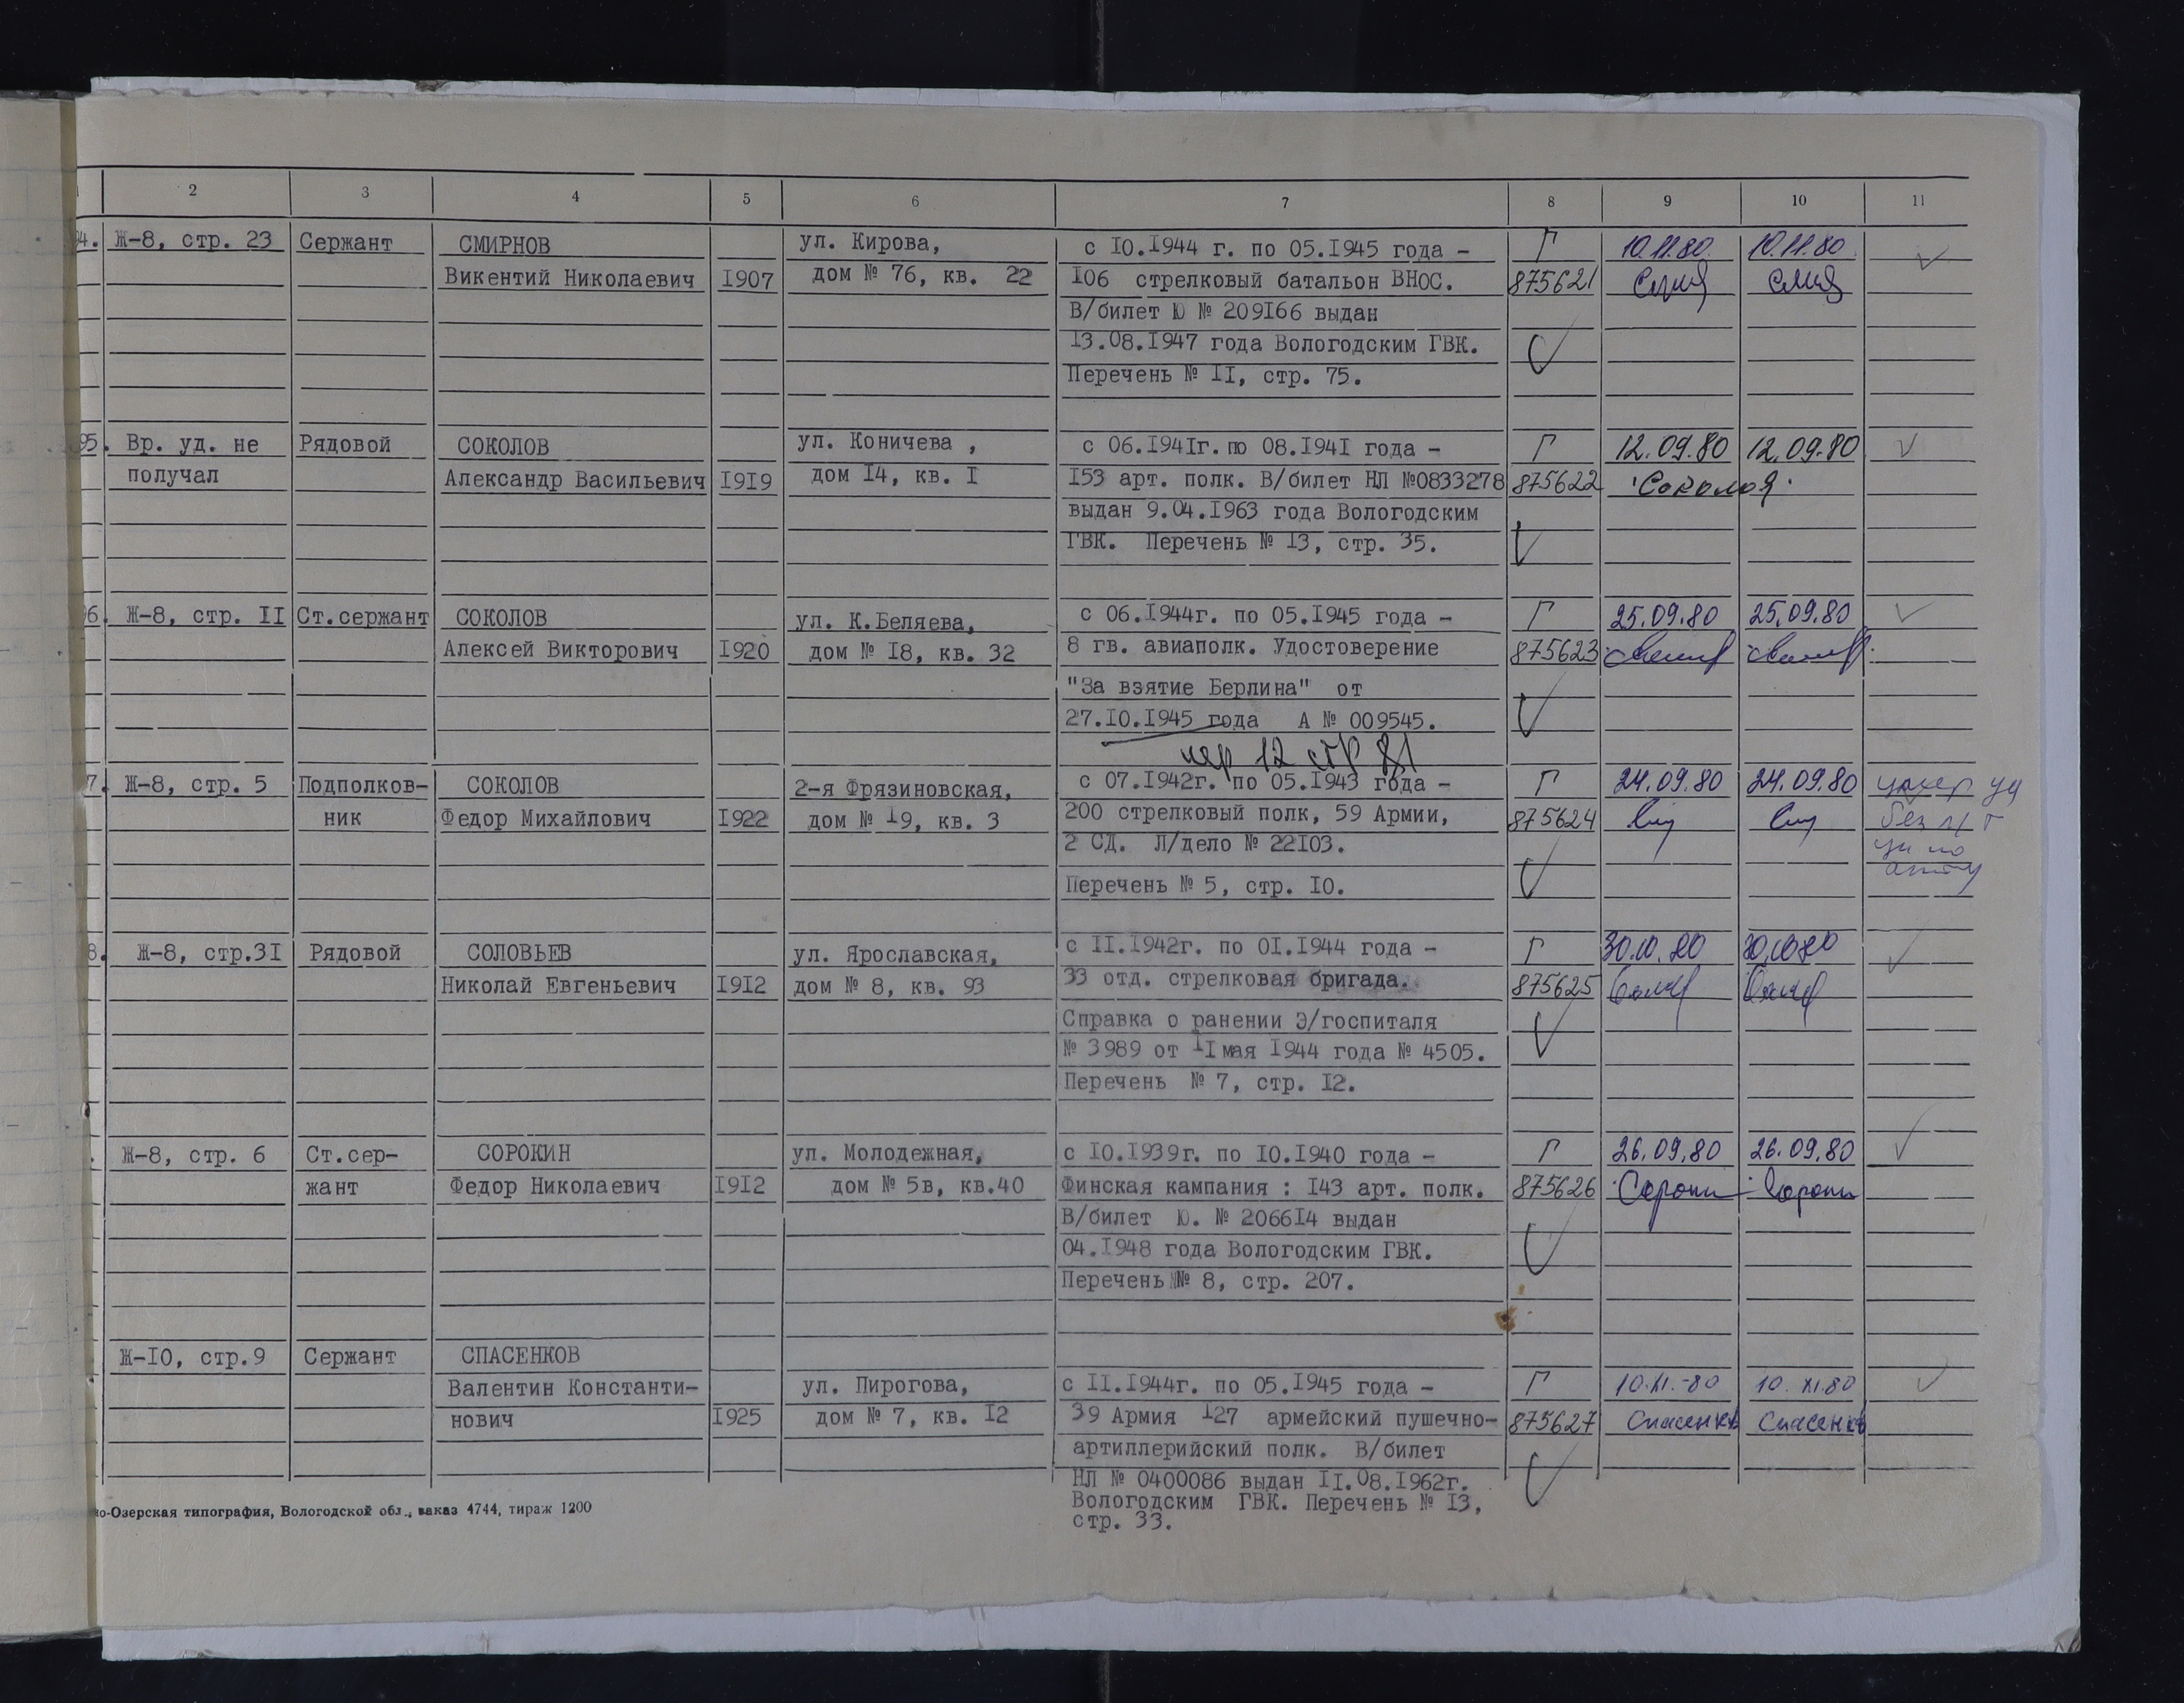 2 3 4 5 6 7 8 9 10 11
4. Ж-8, стр. 23 Сержант СМИРНОВ ул. Кирова, с IO.I944 г. по 05.I945 года - Г 10.11.80. 10.11.80
Викентий Николаевич I907 дом № 76, кв. 22 I06 стрелковый батальон ВНОС. 875621
В/билет Ю № 209I66 выдан
I3.08.I947 года Вологодским ГВК.
Перечень № II, стр. 75.
95. Вр. уд. не Рядовой СОКОЛОВ ул. Коничева , с 06.I94Iг. по 08.I94I года - Г 12.09.80 12.09.80
получал Александр Васильевич I9I9 дом I4, кв. I I53 арт. полк. В/билет НЛ №0833278 875622 Соколов
выдан 9.04.I963 года Вологодским
ГВК. Перечень № I3, стр. 35.
6. Ж-8, стр. II Ст.сержант СОКОЛОВ ул. К.Беляева, с 06.I944г. по 05.I945 года - Г 25.09.80 25.09.80
Алексей Викторович I920 дом № I8, кв. 32 8 гв. авиаполк. Удостоверение 875623
"За взятие Берлина" от
27.IO.I945 года А № 009545.
пер 12 стр 81
7. Ж-8, стр. 5 Подполков- СОКОЛОВ 2-я Фрязиновская, с 07.I942г. по 05.I943 года - Г 24.09.80 24.09.80 умер уд
ник Федор Михайлович I922 дом № I9, кв. 3 200 стрелковый полк, 59 Армии, 875624 без
2 СД. Л/дело № 22I03.
Перечень № 5, стр. IO.
8. Ж-8, стр.3I Рядовой СОЛОВЬЕВ ул. Ярославская, с II.I942г. по OI.I944 года - Г 30.10.80 30.10.80
Николай Евгеньевич I9I2 дом № 8, кв. 93 33 отд. стрелковая бригада. 875625
Справка о ранении Э/госпиталя
№ 3989 от II мая I944 года № 4505.
Перечень № 7, стр. I2.
. Ж-8, стр. 6 Ст.сер- СОРОКИН ул. Молодежная, с IO.I939г. по IO.I940 года - Г 26.09.80 26.09.80
жант Федор Николаевич I9I2 дом № 5в, кв.40 Финская кампания : I43 арт. полк. 875626 Сорокин Сорокин
В/билет Ю. № 2066I4 выдан
04.I948 года Вологодским ГВК.
Перечень № 8, стр. 207.
Ж-IO, стр.9 Сержант СПАСЕНКОВ
Валентин Константи- ул. Пирогова, с II.I944г. по 05.I945 года - Г 10.XI.-80 10.XI.80
нович I925 дом № 7, кв. I2 39 Армия I27 армейский пушечно- 875627 Спасенков Спасенков
артиллерийский полк. В/билет
НЛ № 0400086 выдан II.08.I962г.
Вологодским ГВК. Перечень № I3,
стр. 33.
о-Озерская типография, Вологодской обл., заказ 4744, тираж 1200